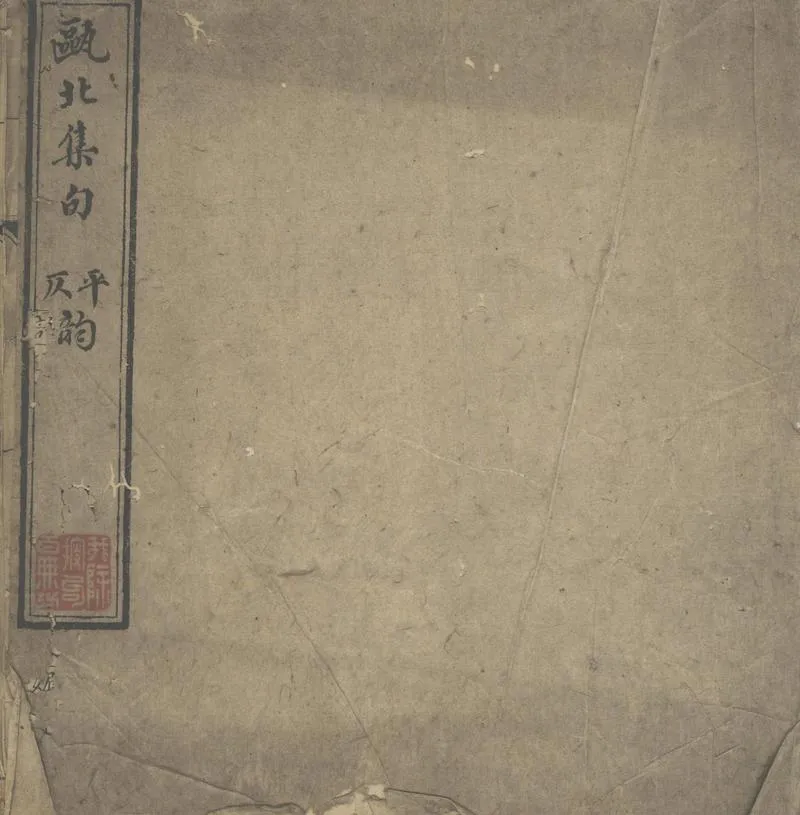 甌北集句
平仄韵